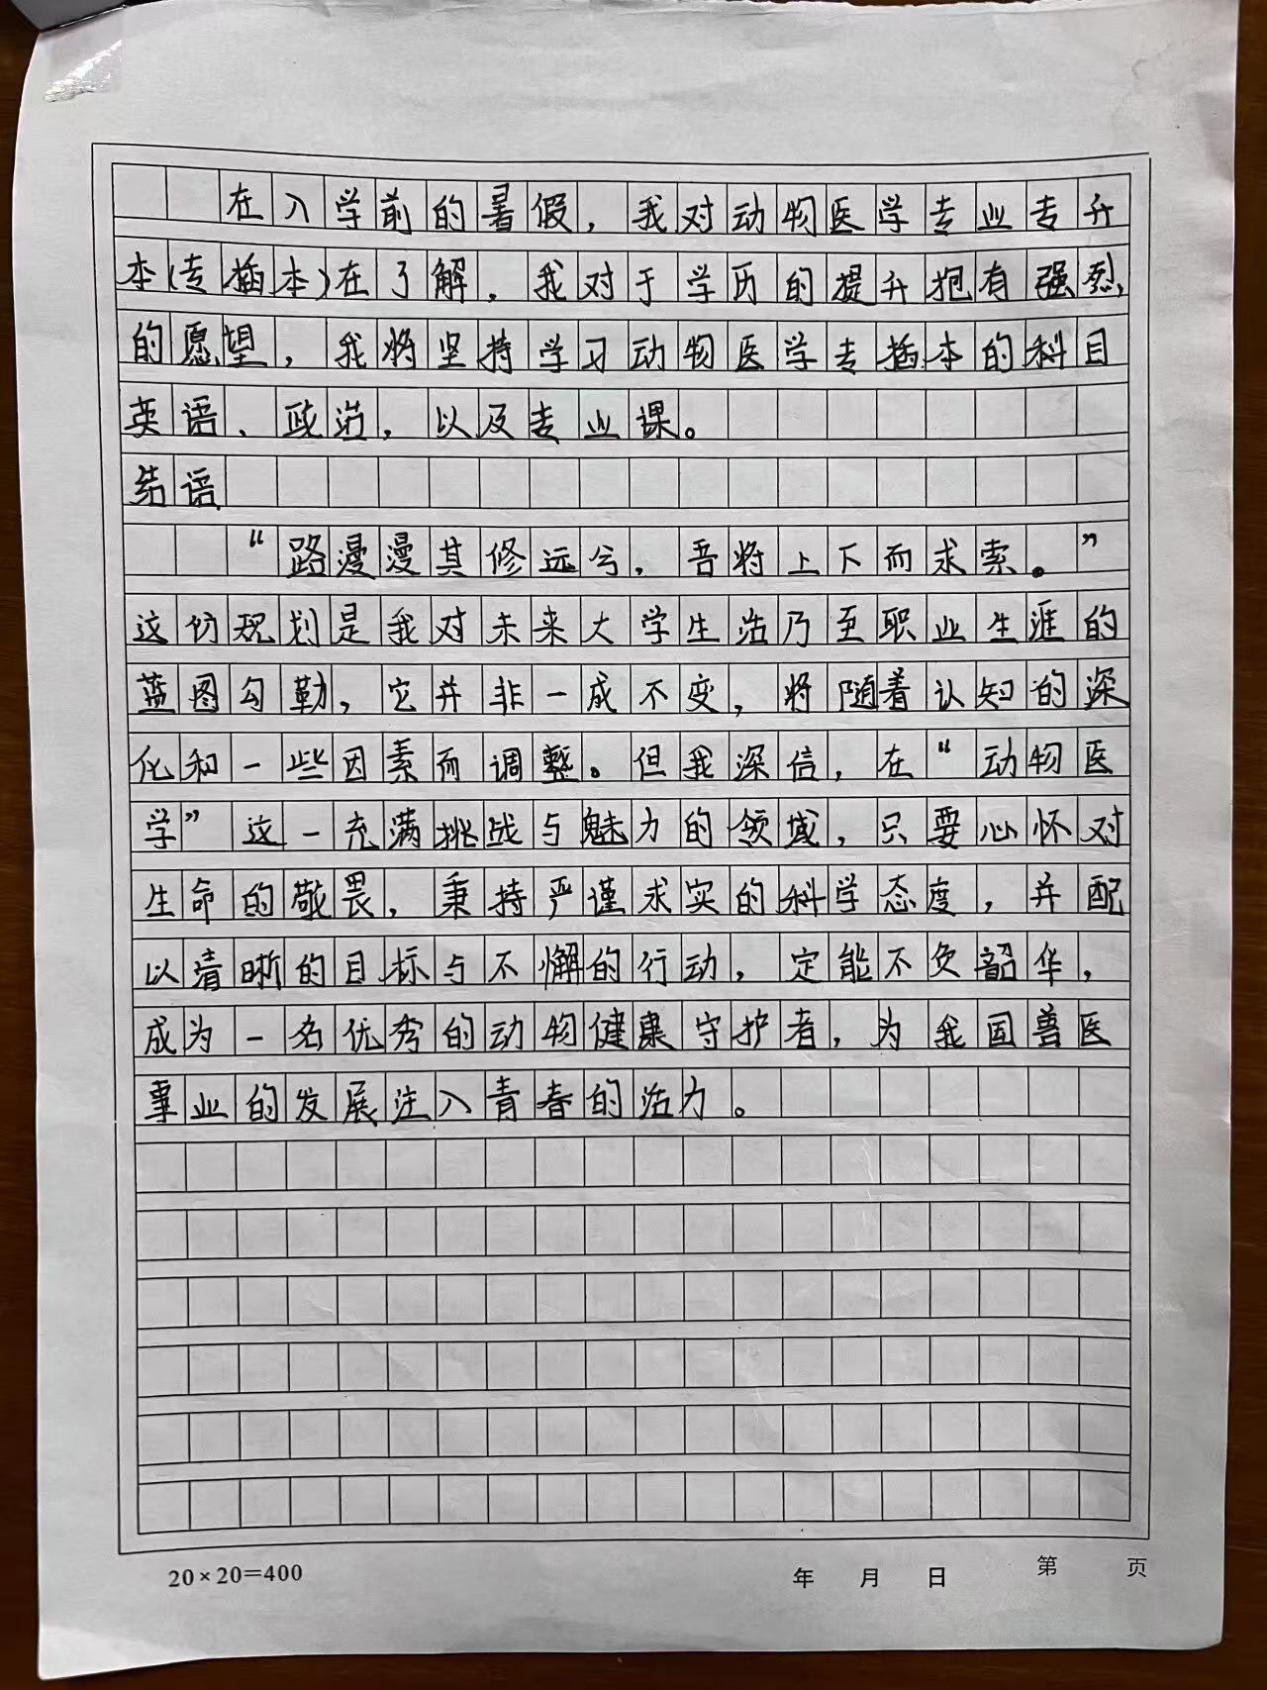 在入学前的暑假，我对动物医学专业专升
本(专插本)在了解，我对于学历的提升抱有强烈
的愿望，我将坚持学习动物医学专插本的科目
英语、政治，以及专业课。
结语
“路漫漫其修远兮，吾将上下而求索。”
这份规划是我对未来大学生活乃至职业生涯的
蓝图勾勒，它并非一成不变，将随着认知的深
化和一些因素而调整。但我深信，在“动物医
学”这一充满挑战与魅力的领域，只要心怀对
生命的敬畏，秉持严谨求实的科学态度，并配
以清晰的目标与不懈的行动，定能不负韶华，
成为一名优秀的动物健康守护者，为我国兽医
事业的发展注入青春的活力。
20×20=400 年 月 日 第 页